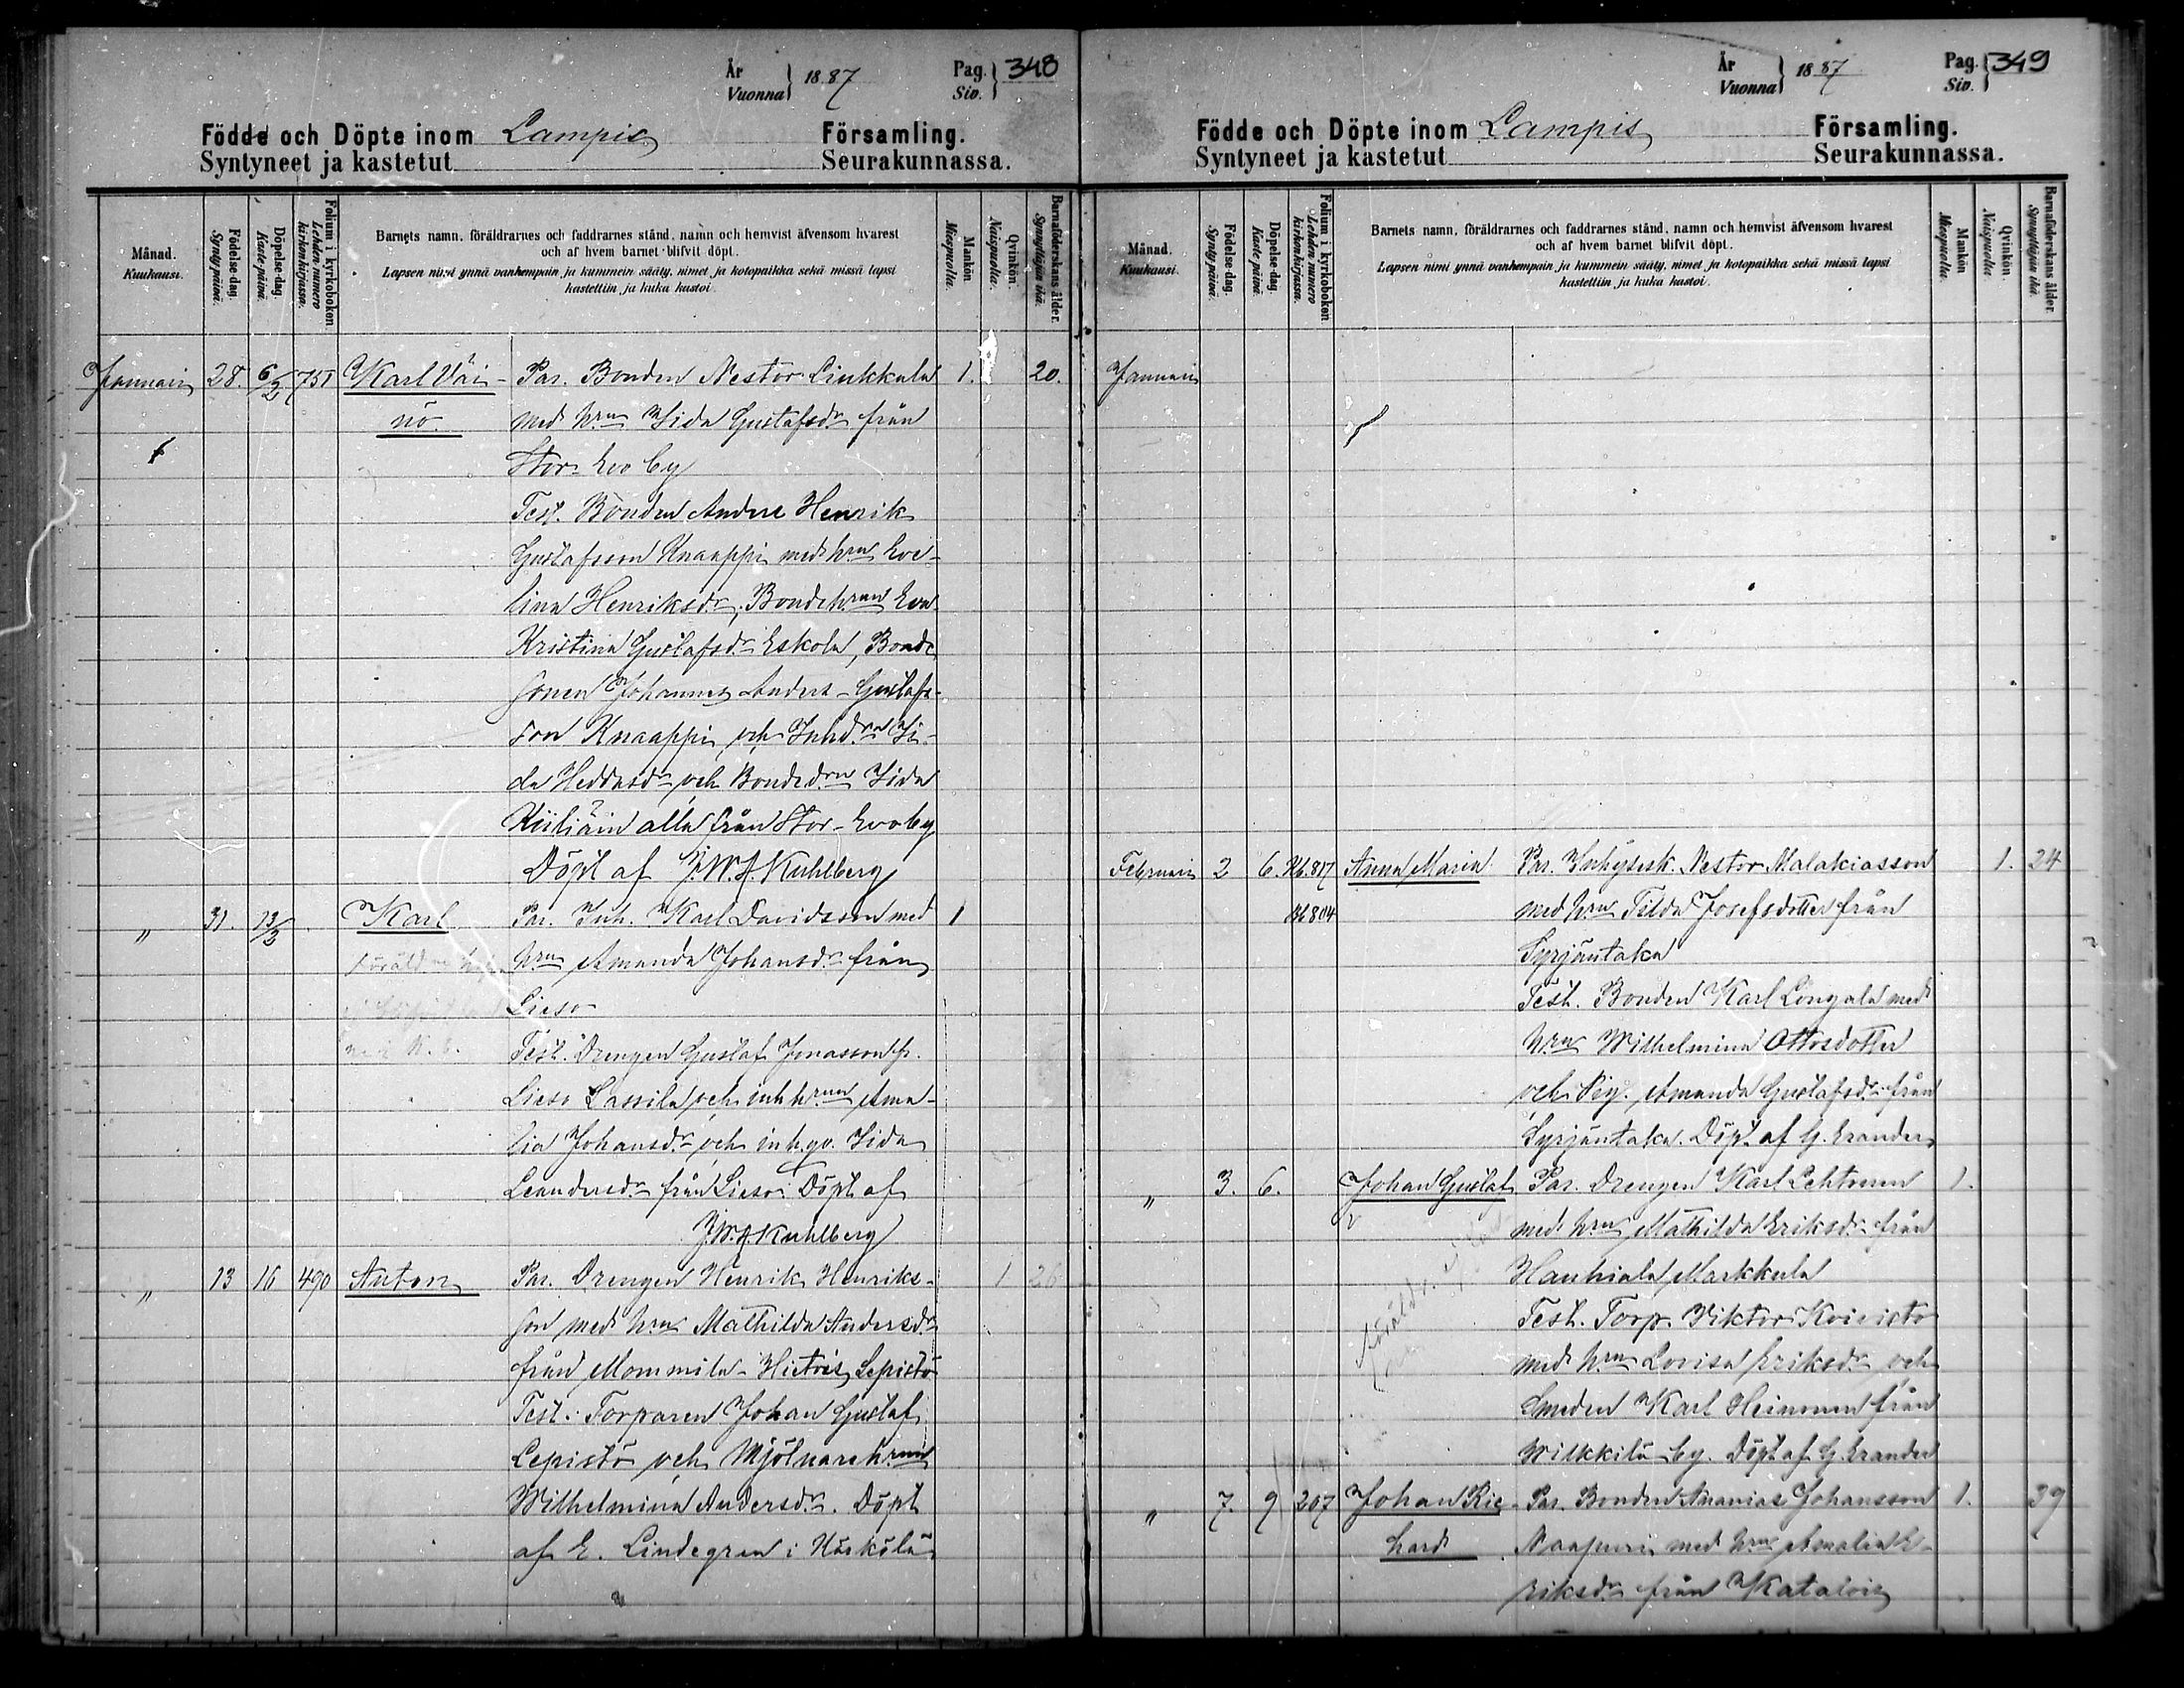 År
Vuonna 1887
Pag.
Siv. 348
Födde och Döpte inom Lampis Församling.
Syntyneet ja kastetut Seurakunnassa.
Månad.
Kuukausi.
Födelse-dag.
Synty-päivä.
Döpelse-dag.
Kaste-päivä.
Folium i kyrkoboken
Lehden numero
kirkonkirjassa.
Barnets namn, föräldrarnes och faddrarnes stånd, namn och hemvist äfvensom hvarest
och af hvem barnet blifvit döpt.
Lapsen nimi ynnä vanhempain ja kummein sääty, nimet ja kotopaikka sekä missä lapsi
kastettiin ja kuka kastoi.
Mankön
Miespuolta.
Qvinkön.
Naispuolta.
Barnaföderskans ålder.
Synnyttäjän ikä.
Januari 28. 6/2 751 Karl Väi- Par. Bonden Nestor Linkkala 1. 20.
nö med hru Iida Gustafsdr från
Stor-Evo by
Test. Bonden Anders Henrik
Gustafsson Knaappi med hru Eve-
lina Henriksdr, Bondehrun Eva
Kristina Gustafsdr Eskola, Bonde
sonen Johannes Anders-Gustafs-
son Knaappi och Inhdrn Ii-
da Heddasdr och Bondedrn Iida
Kiiliäin alla från Stor-Evo by
Döpt af J.W.A. Kuhlberg
" 31. 13/3 Karl Par. Inh. Karl Davidsson med 1
hru Amanda Johansdr från
Lieso
Test. Drengen Gustaf Jonasson fr.
Lieso Lassila och inhhrun Ama-
lia Johansdr och inhqv. Iida
Leandersdr från Lieso. Döpt af
J.W.A. Kuhlberg
" 13 16 490 Anton Par. Drengen Henrik Henriks- 1 26
son med hru Mathilda Andersdr
från Mommila-Hietois, Lepistö
Test. Torparen Johan Gustaf
Lepistö och Mjölnarehrun
Wilhelmina Andersdr. Döpt
af E. Lindegren i Kärkölä
År
Vuonna 1887
Pag.
Siv. 349
Födde och Döpte inom Lampis Församling.
Syntyneet ja kastetut Seurakunnassa.
Månad.
Kuukausi.
Födelse-dag.
Synty-päivä.
Döpelse-dag.
Kaste-päivä.
Folium i kyrkoboken
Lehden numero
kirkonkirjassa.
Barnets namn, föräldrarnes och faddrarnes stånd, namn och hemvist äfvensom hvarest
och af hvem barnet blifvit döpt.
Lapsen nimi ynnä vanhempain ja kummein sääty, nimet ja kotopaikka sekä missä lapsi
kastettiin ja kuka kastoi.
Mankön
Miespuolta.
Qvinkön.
Naispuolta
Barnaföderskans ålder.
Synnyttäjän ikä.
Januari
Februari 2 6. 817 Anna Maria Par. Nestor Malakiasson 1. 24
804 med hru Tilda Josefsdotter från
Syrjäntaka
Test. Bonden Karl Longala med
hru Wilhelmina Ottosdotter
och Pig. Amanda Gustafsdr från
Syrjäntaka. Döpt af G. Erander
" 3. 6. Johan Gustaf Par. Drengen Karl Lehtonen 1.
med hru Mathilda Eriksdr från
Hauhiala Markkula
Test. Torp. Viktor Koivisto
med hru Lovisa Eriksdr och
Smeden Karl Heinonen från
Wilkkilä by. Döpt af G. Erander
" 7. 9 207 Johan Ric- Par. Bonden Ananias Johansson 1. 39
hard Naapuri med hru Amalia E-
riksdr från Katalois